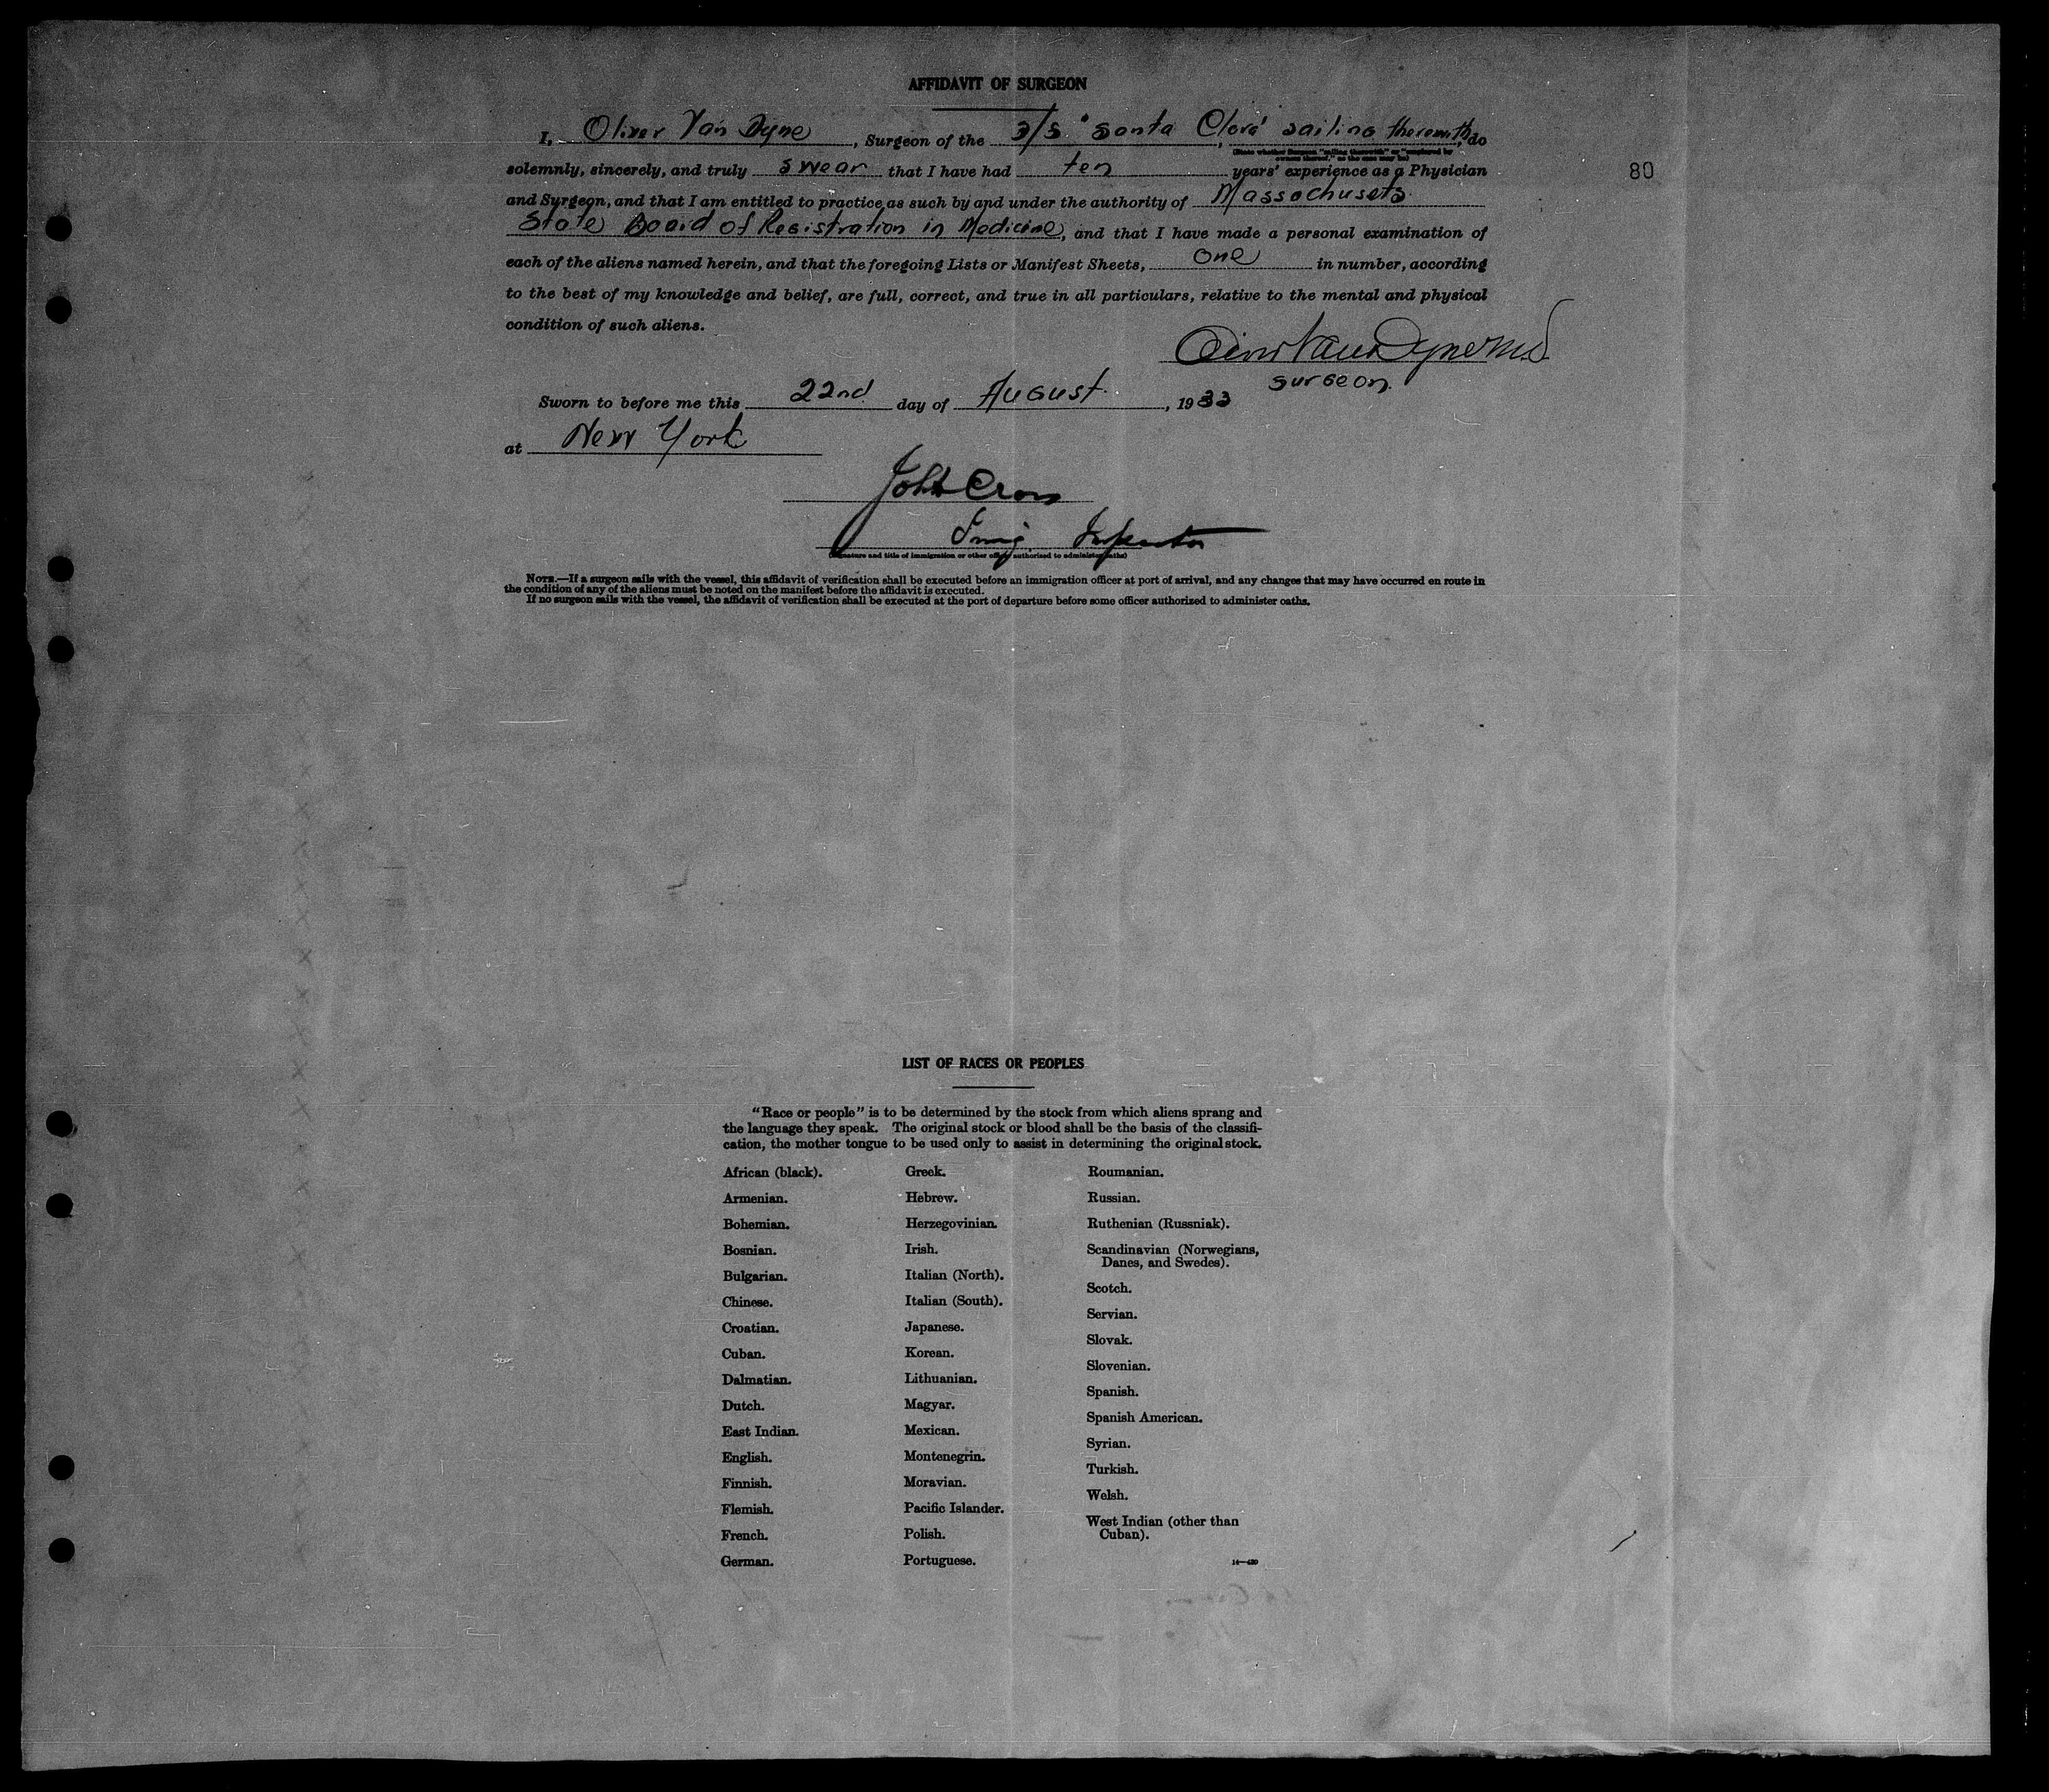 AFFIDAVIT OF SURGEON
I, Oliver Van Dyne, Surgeon of the S/S "Santa Clara" sailing therewith, do
(State whether Surgeon "sailing therewith" or "employed by
owners thereof," as the case may be)
solemnly, sincerely, and truly swear that I have had ten years' experience as a Physician
80
and Surgeon, and that I am entitled to practice as such by and under the authority of Massachusets
State Board of Registration in Medicine, and that I have made a personal examination of
each of the aliens named herein, and that the foregoing Lists or Manifest Sheets, one in number, according
to the best of my knowledge and belief, are full, correct, and true in all particulars, relative to the mental and physical
condition of such aliens.
Oliver Van Dyne M.D.
Surgeon.
Sworn to before me this 22nd day of August, 1933
at New York
John Cross
Immig. Inspector
(Signature and title of immigration or other officer authorized to administer oaths)
NOTE.—If a surgeon sails with the vessel, this affidavit of verification shall be executed before an immigration officer at port of arrival, and any changes that may have occurred en route in
the condition of any of the aliens must be noted on the manifest before the affidavit is executed.
If no surgeon sails with the vessel, the affidavit of verification shall be executed at the port of departure before some officer authorized to administer oaths.
LIST OF RACES OR PEOPLES
"Race or people" is to be determined by the stock from which aliens sprang and
the language they speak. The original stock or blood shall be the basis of the classifi-
cation, the mother tongue to be used only to assist in determining the original stock.
African (black).
Armenian.
Bohemian.
Bosnian.
Bulgarian.
Chinese.
Croatian.
Cuban.
Dalmatian.
Dutch.
East Indian.
English.
Finnish.
Flemish.
French.
German.
Greek.
Hebrew.
Herzegovinian.
Irish.
Italian (North).
Italian (South).
Japanese.
Korean.
Lithuanian.
Magyar.
Mexican.
Montenegrin.
Moravian.
Pacific Islander.
Polish.
Portuguese.
Roumanian.
Russian.
Ruthenian (Russniak).
Scandinavian (Norwegians,
Danes, and Swedes).
Scotch.
Servian.
Slovak.
Slovenian.
Spanish.
Spanish American.
Syrian.
Turkish.
Welsh.
West Indian (other than
Cuban).